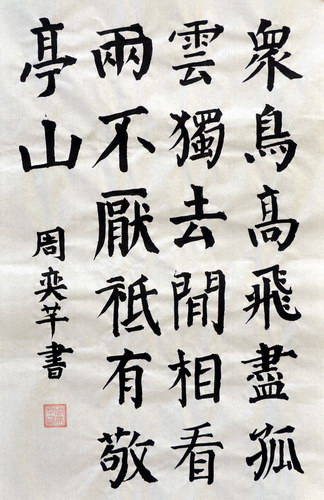 衆鳥高飛盡孤
雲獨去閒相看
兩不厭祗有敬
亭山
周奕芊書